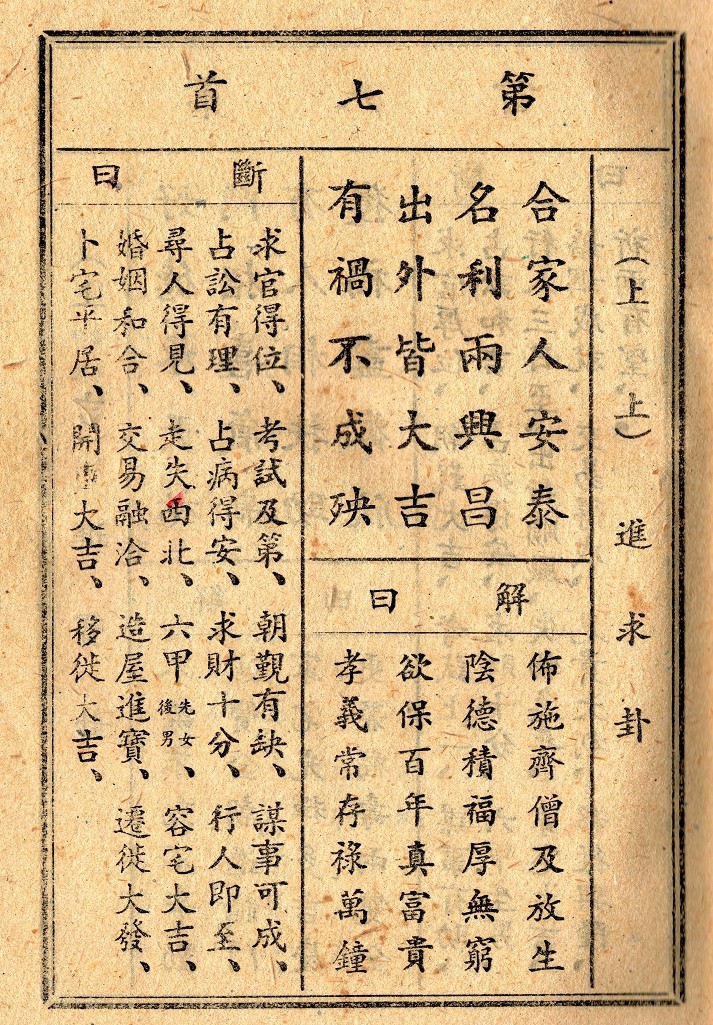 第七首
(上上)進求卦
合家人安泰
名利兩興昌
出外皆大吉
有禍不成殃
解曰
佈施齊僧及放生
陰德積福厚無窮
欲保百年真富貴
孝義常存祿萬鐘
斷曰
求官得位、考試及第、朝覲有缺、謀事可成、
占訟有理、占病得安、求財十分、行人即至、
尋人得見、走失西北、六甲先女後男、容宅大吉、
婚姻和合、交易融洽、造屋進寶、遷徙大發、
卜宅平居、開大吉、移徙大吉、